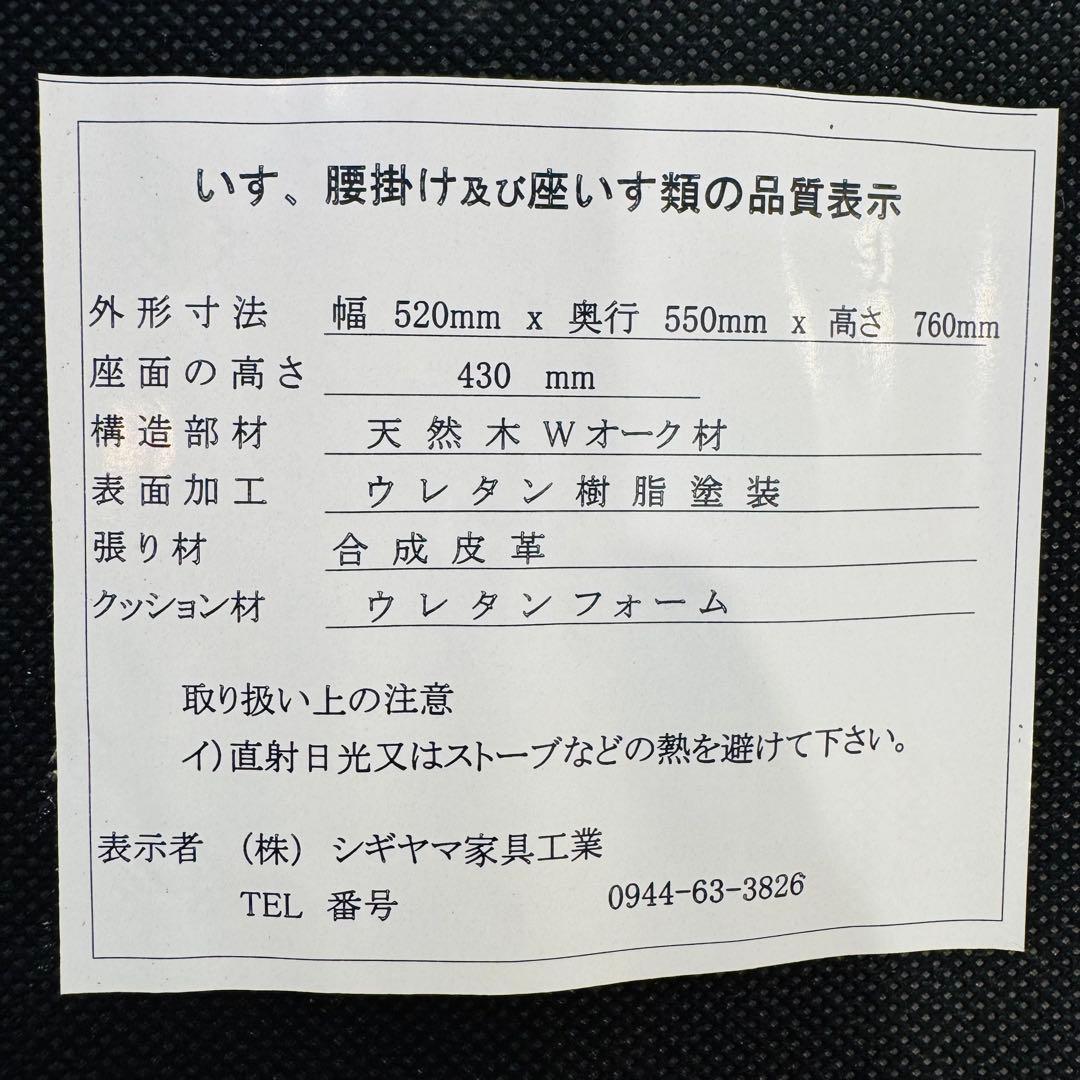 いす、腰掛け及び座いす類の品質表示
外形寸法 幅 520mm x 奥行 550mm x 高さ 760mm
座面の高さ 430 mm
構造部材 天然木Wオーク材
表面加工 ウレタン樹脂塗装
張り材 合成皮革
クッション材 ウレタンフォーム
取り扱い上の注意
イ)直射日光又はストーブなどの熱を避けて下さい。
表示者 (株) シギヤマ家具工業
TEL 番号 0944-63-3826